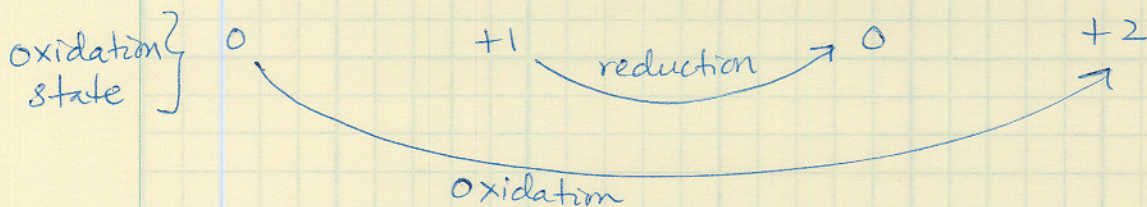 oxidation state } 0 +1 0 +2
reduction
oxidation